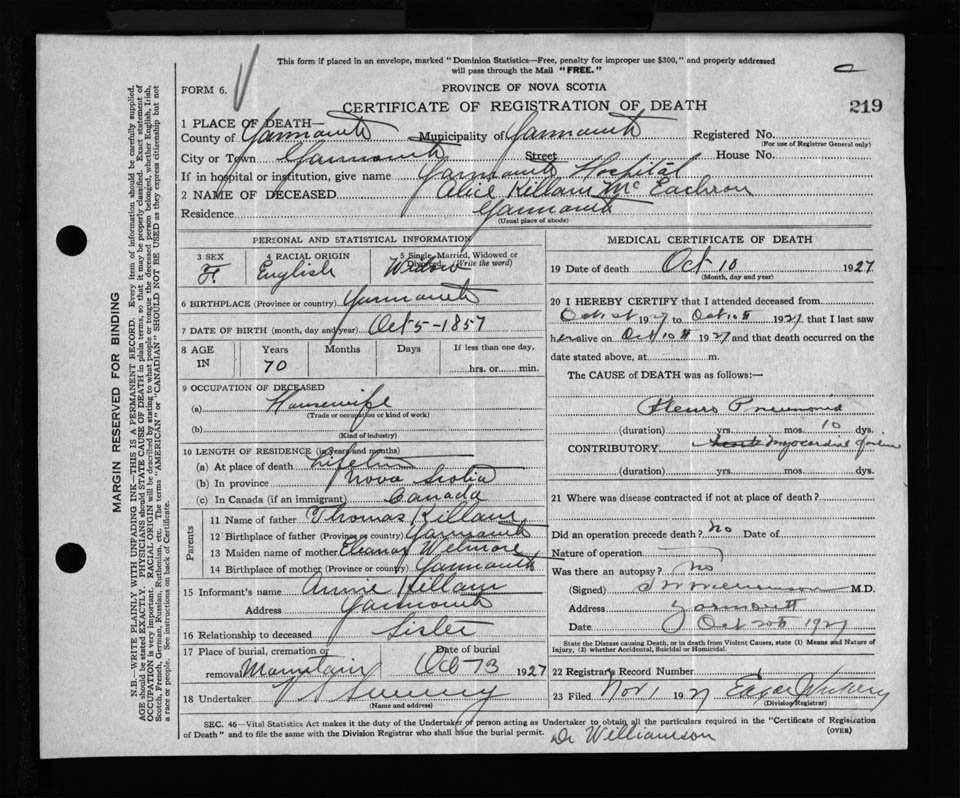 This form if placed in an envelope, marked "Dominion Statistics—Free, penalty for improper use $300," and properly addressed
will pass through the Mail "FREE."
FORM 6.
PROVINCE OF NOVA SCOTIA
CERTIFICATE OF REGISTRATION OF DEATH
219
1 PLACE OF DEATH—
County of Yarmouth Municipality of Yarmouth Registered No.
(For use of Registrar General only)
City or Town Yarmouth Street House No.
If in hospital or institution, give name Yarmouth Hospital
2 NAME OF DECEASED Alice Killam McEachron
Residence Yarmouth
(Usual place of abode)
PERSONAL AND STATISTICAL INFORMATION
3 SEX F. 4 RACIAL ORIGIN English 5 Single, Married, Widowed or Divorced (Write the word) Widow
6 BIRTHPLACE (Province or country) Yarmouth
7 DATE OF BIRTH (month, day and year) Oct 5 - 1857
8 AGE IN Years 70 Months Days If less than one day, hrs. or min.
9 OCCUPATION OF DECEASED
(a) Housewife
(Trade or occupation or kind of work)
(b)
(Kind of industry)
10 LENGTH OF RESIDENCE (in years and months)
(a) At place of death Lifetime
(b) In province Nova Scotia
(c) In Canada (if an immigrant) Canada
Parents
11 Name of father Thomas Killam
12 Birthplace of father (Province or country) Yarmouth
13 Maiden name of mother Eleanor
14 Birthplace of mother (Province or country) Yarmouth
15 Informant's name Annie Killam
Address Yarmouth
16 Relationship to deceased Sister
17 Place of burial, cremation or removal Mountain Date of burial Oct 13 1927
18 Undertaker V S Sweeny
(Name and address)
MEDICAL CERTIFICATE OF DEATH
19 Date of death Oct 10 1927
(Month, day and year)
20 I HEREBY CERTIFY that I attended deceased from
Oct 1st 1927 to Oct 10th 1927, that I last saw
her alive on Oct 10th 1927 and that death occurred on the
date stated above, at m.
The CAUSE of DEATH was as follows:—
Pleuro Pneumonia
(duration) yrs. mos. 10 dys.
CONTRIBUTORY Myocardial failure
(duration) yrs. mos. dys.
21 Where was disease contracted if not at place of death?
Did an operation precede death? No Date of
Nature of operation
Was there an autopsy? No
(Signed) M.D.
Address Yarmouth
Date Oct 20th 1927
State the Disease causing Death, or in death from Violent Causes, state (1) Means and Nature of
Injury, (2) whether Accidental, Suicidal or Homicidal.
22 Registrar's Record Number
23 Filed Nov 1 1927 Edgar
(Division Registrar)
SEC. 46—Vital Statistics Act makes it the duty of the Undertaker or person acting as Undertaker to obtain all the particulars required in the "Certificate of Registration
of Death" and to file the same with the Division Registrar who shall issue the burial permit.
(OVER)
Dr Williamson
MARGIN RESERVED FOR BINDING
N.B.—WRITE PLAINLY WITH UNFADING INK—THIS IS A PERMANENT RECORD. Every item of information should be carefully supplied.
AGE should be stated EXACTLY. PHYSICIANS should STATE CAUSE OF DEATH in plain terms, so that it may be properly classified. Exact statement of
OCCUPATION is very important. RACIAL ORIGIN will be described by stating to what people or tongue the deceased person belonged, whether English, Irish,
Scotch, French, German, Russian, Ruthenian, etc. The terms "AMERICAN" or "CANADIAN" SHOULD NOT BE USED as they express citizenship but not
a race or people. See instructions on back of Certificate.